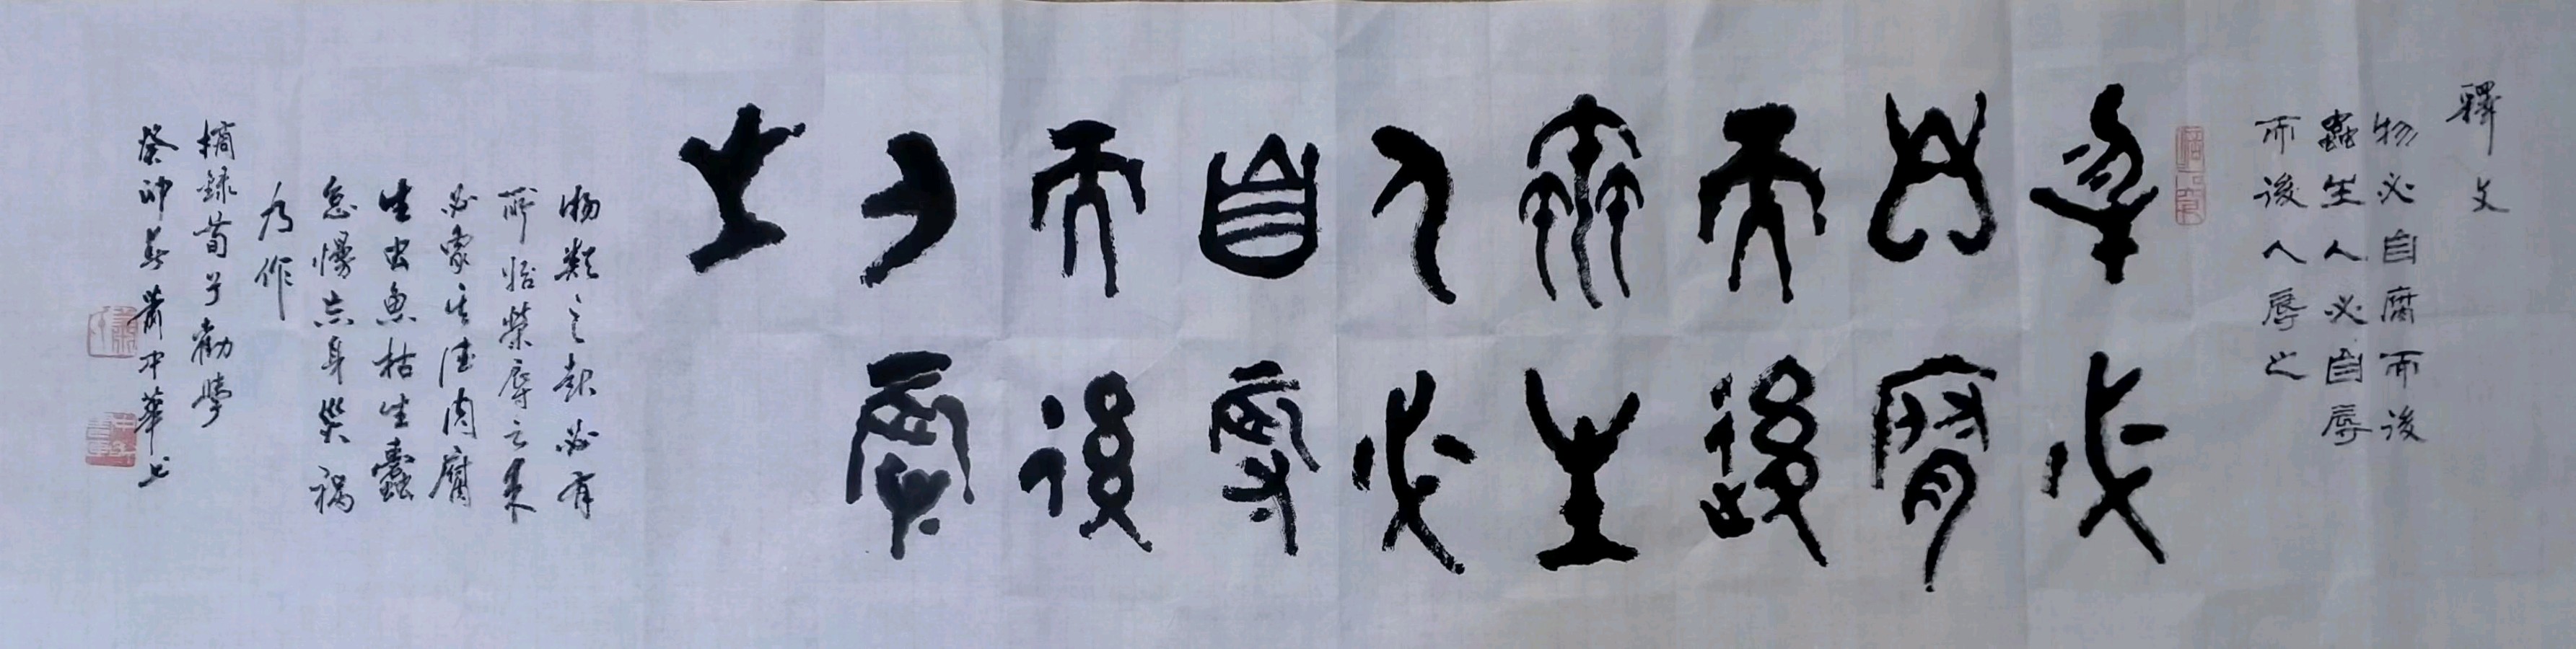 釋文
物必自腐而後
蟲生人必自辱
而後人辱之
物必
自腐
而後
蟲生
人必
自辱
而後
人辱
之
物类之起必有
所始榮辱之来
必象其德肉腐
生虫魚枯生蠹
怠慢忘身災祸
乃作
摘録荀子勸學
癸卯春萧中華书